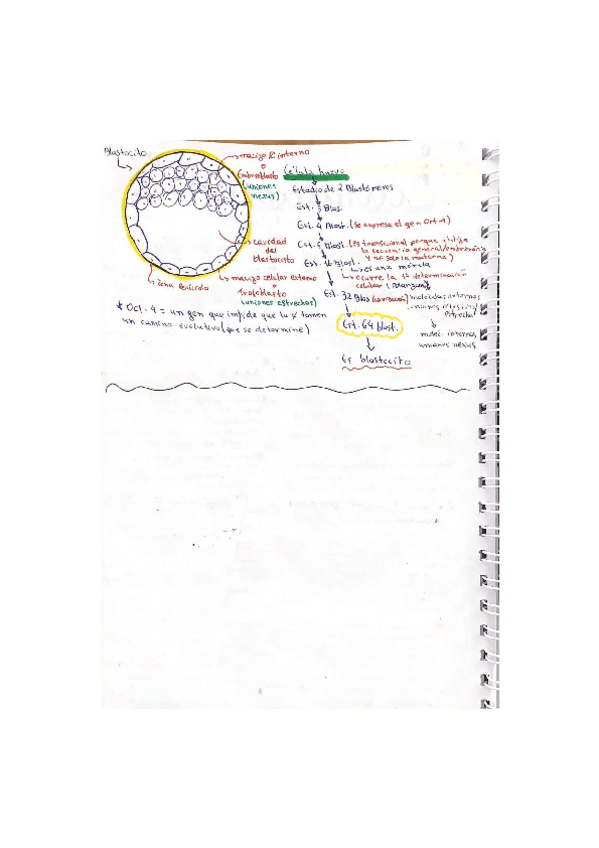 Blastocito
macizo ₵ interno
o
Embrioblasto
(uniones
nexus)
cavidad
del
blastocisto
macizo celular externo
o
trofoblasto
(uniones estrechas)
Zona Pelúcida
* Oct-4 = un gen que impide que la ₵ tomen
un camino evolutivo (que se determine)
Célula huevo
Estadio de 2 Blastómeros
Est. Blas.
Est. 4 Blast. (se expresa el gen Oct-4)
Est. Blast. (es transicional porque utiliza
la secuencia general/embrionaria
Y no solo la materna)
Est. 16 Blast.
↳ es una mórula
↳ ocurre la 1ª determinación
celular
Est. 32 Blas (compactación)
externas
uniones
estrechas
Est. 64 blast.
internas
uniones nexus
Es blastocito